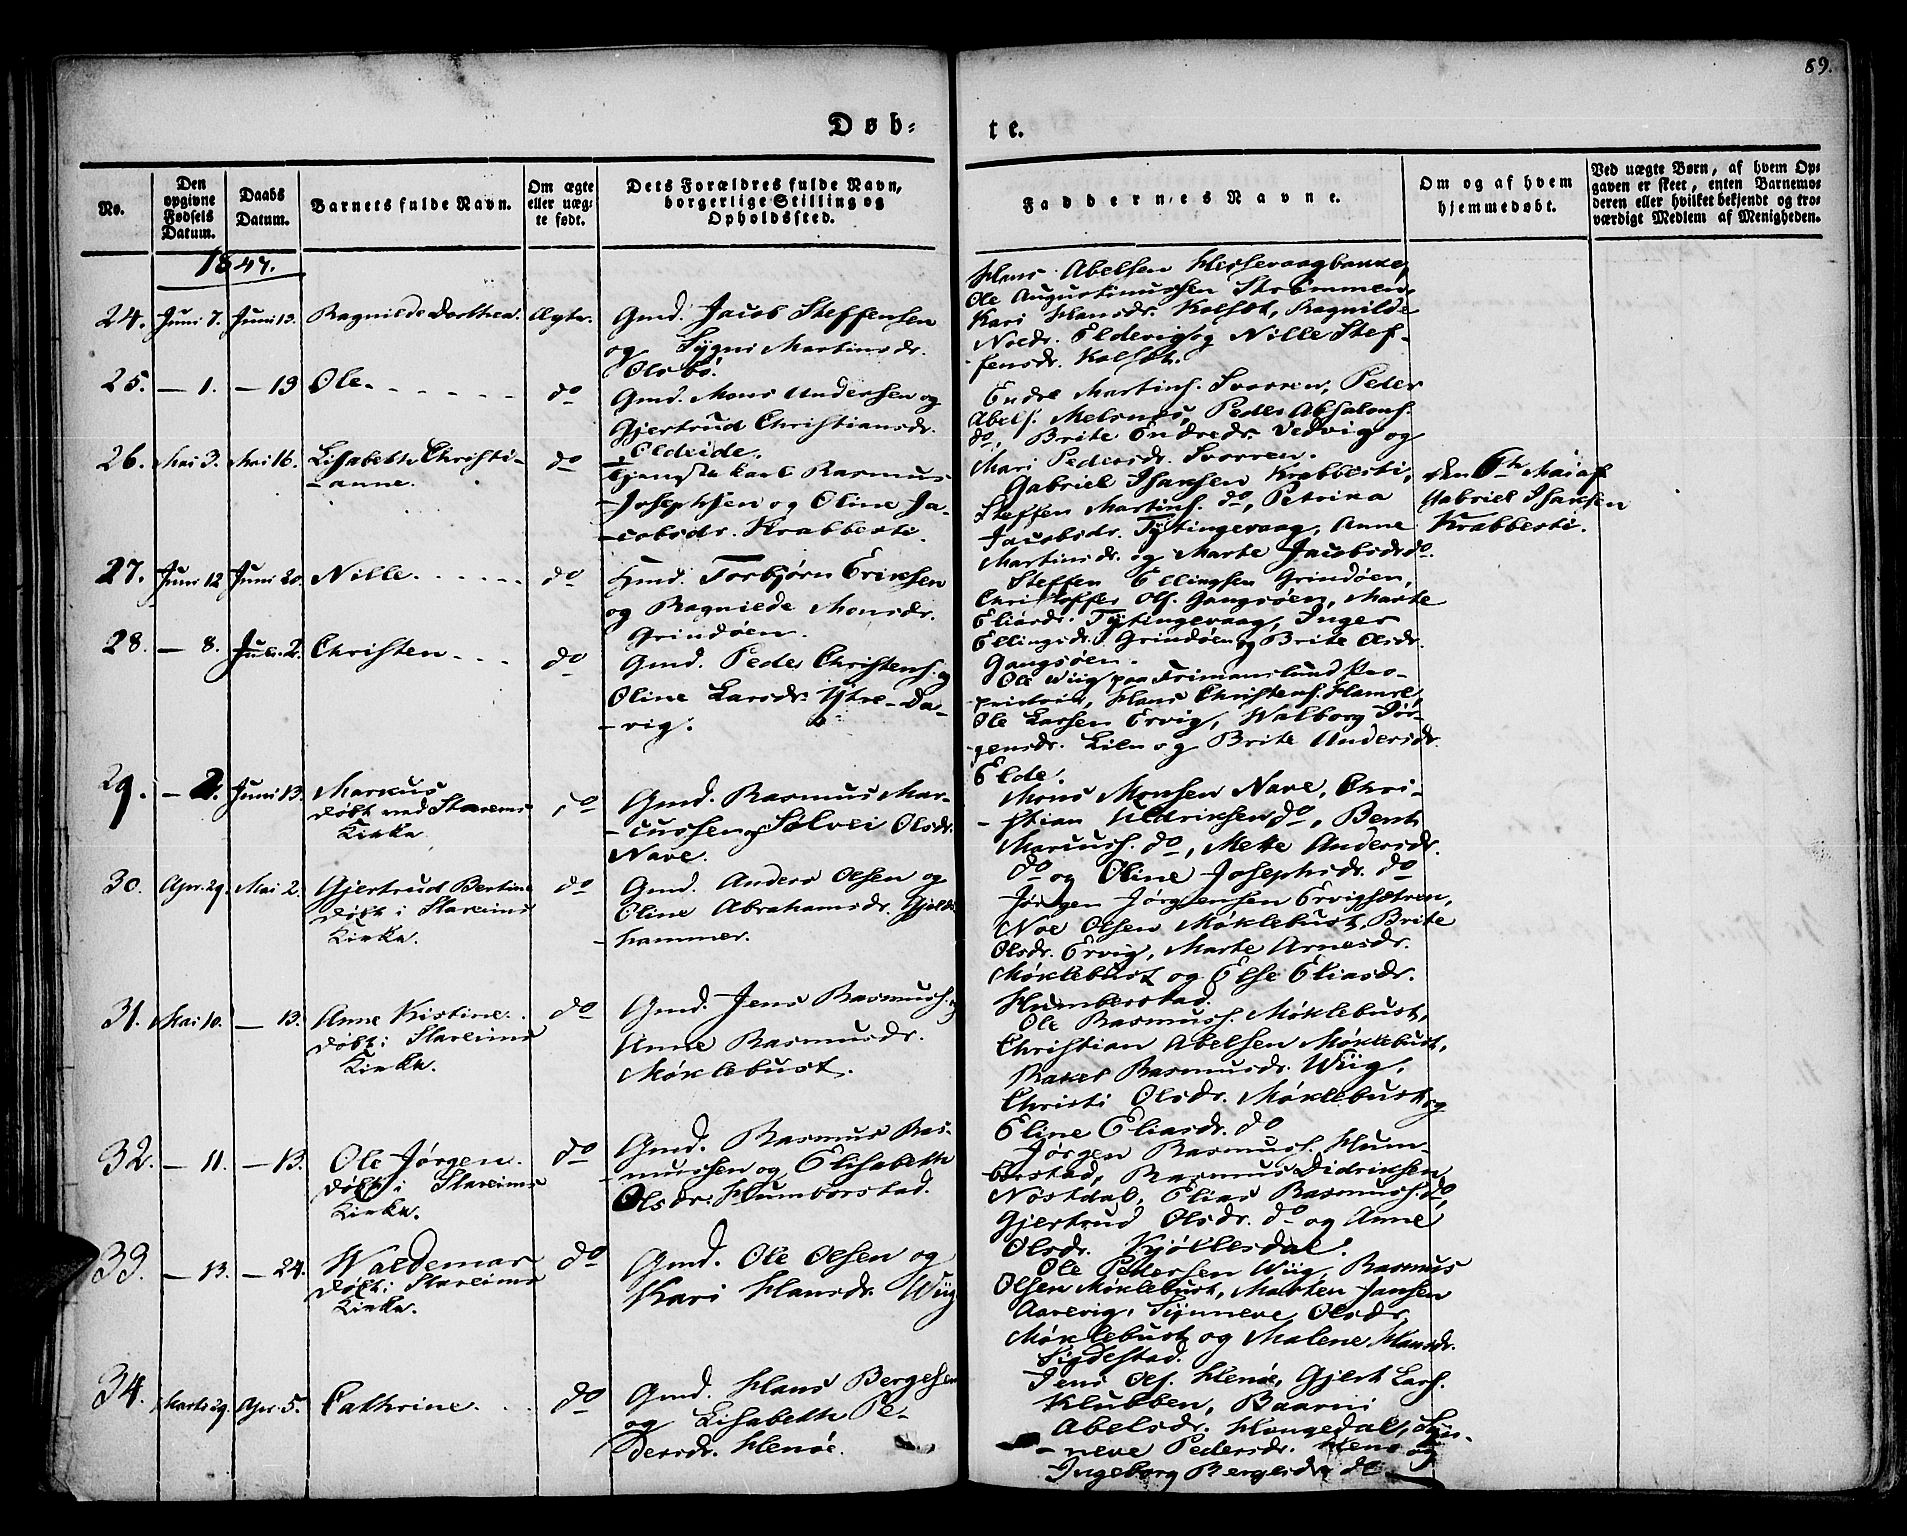 89.
Døb- te.
No.
Den opgivne Fødsels Datum.
Daabs Datum.
Barnets fulde Navn.
Om ægte eller uægte født.
Dets Forældres fulde Navn, borgerlige Stilling og Opholdssted.
Faddernes Navne.
Om og af hvem hjemmedøbt.
Ved uægte Børn, af hvem Opgaven er skeet, enten Barnemoderen eller hvilket bekjendt og troværdigt Medlem af Menigheden.
1847.
24. Juni 7. Juni 13. Ragnilde Dorthea. Ægte.
Gmd. Jacob Steffensen
og Sygni Martinsdr.
Olsbø.
Hans Abelsen Hessevaagbakke,
Ole Augustinussen Strømmen,
Kari Hansdr. Kolset, Ragnilde
Noedr. Eldevig og Nille Stef-
fensdr. Kolset.
25. — 1. — 13 Ole. do
Gmd. Mons Andersen og
Gjertrud Christiansdr.
Eldeide.
Endre Martins. Svorren, Peder
Abels. Melsnes, Peder Absalons.
do, Brite Endredr. Vedvig og
Mari Pedersdr. Svorren.
26. Mai 3. Mai 16. Lisabeth Christi-
-anne. do
Tjenestekarl Rasmus
Josephsen og Oline Ja-
-cobsdr. Krabbesti.
Gabriel Isaksen Krabbesti,
Steffen Martins. do, Petrika
Jacobsdr. Tytingevaag, Anne
Martinsdr. og Marte Jacobsdr. do.
den 6te Mai af
Gabriel Isaksen
Krabbesti.
27. Juni 12 Juni 20. Nille. do
Gmd. Torbjørn Eriksen
og Ragnilde Monsdr.
Grindøen.
Steffen Ellingsen Grindøen,
Christoffer Ols. Gangsøen, Marte
Eliasdr. Tytingevaag, Inger
Ellingsdr. Grindøen og Brite Olsdr.
Gangsøen.
28. — 8. Juli 2. Christen. do
Gmd. Peder Christens. og
Oline Larsdr. Ytre-Da-
-vig.
Ole Wiig paa Frimanslund Pro-
prietair, Hans Christens. Hamre,
Ole Larsen Ervig, Walborg Jør-
gensdr. Liln og Brite Andersdr.
Elde.
29. — 2. Juni 13. Markus
døbt ved Stareims
Kirke. do
Gmd. Rasmus Mar-
-cussen og Solvei Olsdr.
Nave.
Mons Monsen Nave, Chri-
-stian Didriksen do, Bent
Marius. do, Mette Andersdr.
do og Oline Josephsdr. do
30. Apr. 29. Mai 2. Gjertrud Bertine
døbt i Stareims
Kirke. do
Gmd. Anders Olsen og
Eline Abrahamsdr. Gjelds
-hammer.
Jørgen Jørgensen Ervigsætren,
Noe Olsen Møklebust, Brite
Olsdr. Ervig, Marte Arnesdr.
Møklebust og Else Eliasdr.
Humberstad.
31. Mai 10. — 13. Anne Kistine.
døbt i Stareims
Kirke. do
Gmd. Jens Rasmuss. og
Anne Rasmusdr.
Møklebust.
Ole Rasmuss. Møklebust,
Christian Abelsen Møklebust,
Rakel Rasmusdr. Wiig,
Christi Olsdr. Møklebust og
Eline Eliasdr. do
32. — 11. — 13. Ole Jørgen.
døbt i Stareims
Kirke. do
Gmd. Rasmus Ras-
-mussen og Elisabeth
Olsdr. Humborstad.
Jørgen Rasmuss. Hum-
-borstad, Rasmus Didriksen
Nøstdal, Elias Rasmuss. do,
Gjertrud Olsdr. do og Anne
Olsdr. Kjøllesdal.
33. — 13. — 24. Waldemar
døbt i Stareims
Kirke. do
Gmd. Ole Olsen og
Kari Hansdr. Wiig
Ole Pedersen Wiig, Rasmus
Olsen Møklebust, Marten Jansen
Aarevig, Synneve Olsdr.
Møklebust og Malene Hansdr.
Sigdestad.
34. Marts 29. Apr. 5. Cathrine. do
Gmd. Hans Bergesen
og Lisabeth Pe-
dersdr. Henøe.
Jens Ols. Henøe, Gjert Lars.
Klubben, Baarni
Abelsdr. Haugedal, Syn-
-neve Pedersdr. Henø og
Ingeborg Bergesdr. do